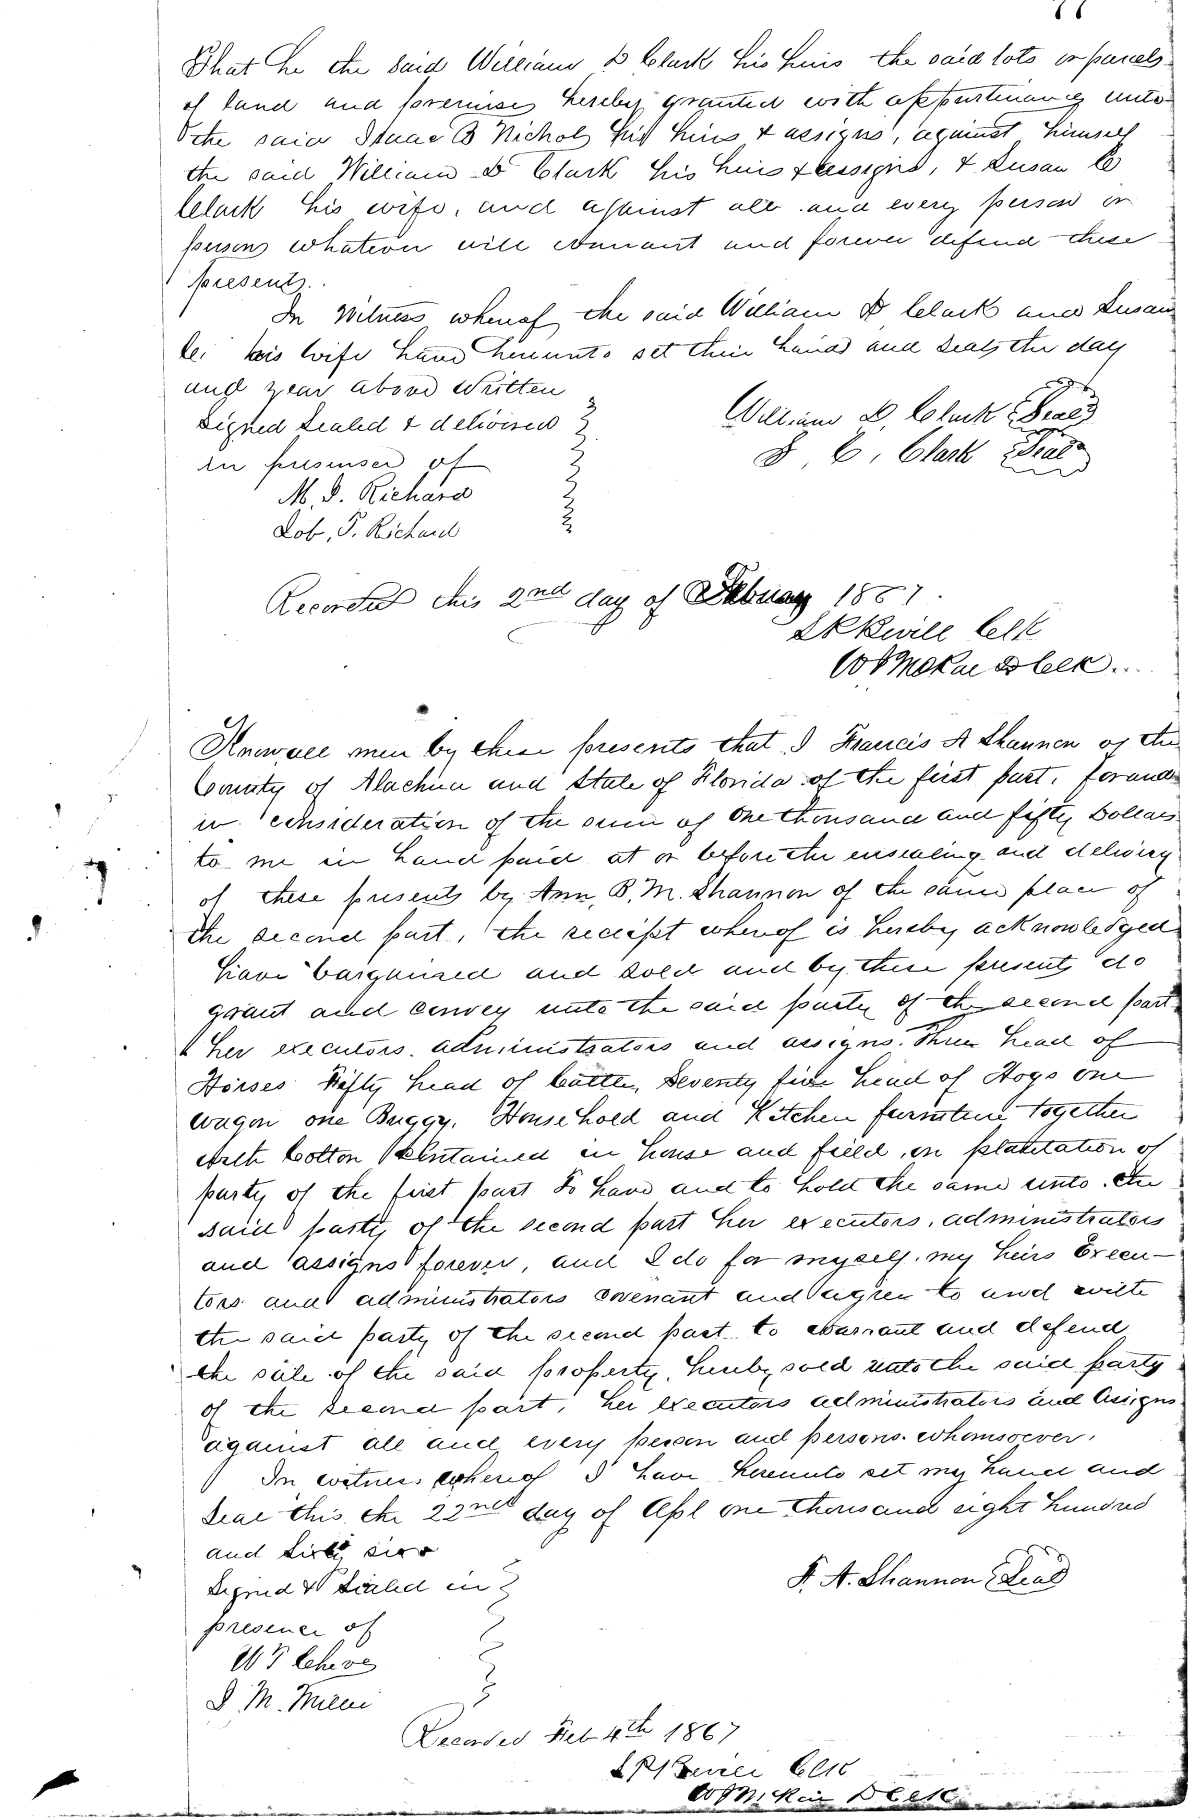 77
That he the said William D Clark his heirs the said lots or parcels
of land and premises hereby granted with appurtinances unto
the said Isaac B Nichols his heirs & assigns, against himself
the said William D Clark his heirs & assigns, & Susan C
Clark his wife, and against all and every person or
persons whatever will warrant and forever defend these
presents.
In Witness whereof the said William D Clark and Susan
C. his wife have hereunto set their hands and seals the day
and year above written
Signed Sealed & delivered
William D. Clark Seal
in presence of
S. C. Clark Seal
M. D. Richard
Lob. P. Richard
Recorded this 2nd day of Febuary 1867.
Clk
Know all men by these presents that I Francis A Shannon of the
County of Alachua and State of Florida of the first part, for and
in consideration of the sum of One thousand and fifty Dollars
to me in hand paid at or before the ensealing and delivery
of these presents by Ann. B. M. Shannon of the same place of
the second part, the receipt whereof is hereby acknowledged
have bargained and sold and by these presents do
grant and convey unto the said party of the second part
her executors. administrators and assigns. Three head of
Horses Fifty head of Cattle, Seventy five head of Hogs one
wagon one Buggy. House hold and Kitchen furniture together
with Cotton contained in house and field, on plantation of
party of the first part To have and to hold the same unto the
said party of the second part her executors. administrators
and assigns forever, and I do for myself. my heirs Execu-
tors and administrators covenant and agree to and with
the said party of the second part to warrant and defend
the sale of the said property, hereby sold unto the said party
of the second part, her executors administrators and Assigns
against all and every person and persons whomsoever.
In witness whereof I have hereunto set my hand and
Seal this the 22nd day of Apl one thousand eight hundred
and Sixty six
Signed & Sealed in
F. A. Shannon Seal
presence of
W T Cheves
Recorded Feb 4th 1867
Clk